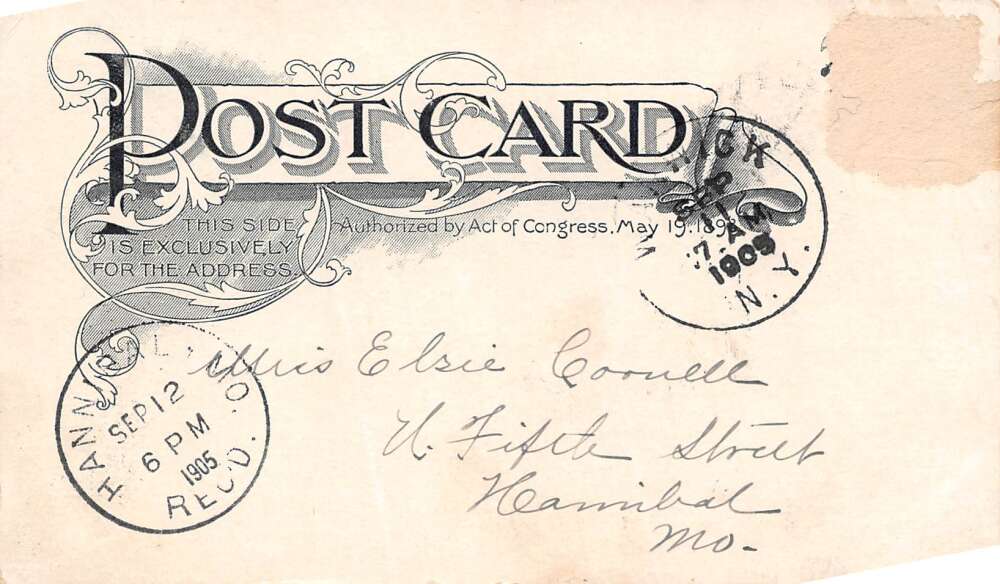 POST CARD
THIS SIDE
IS EXCLUSIVELY
FOR THE ADDRESS.
Authorized by Act of Congress, May 19, 1898
SEP
11
7 AM
1905
N.Y.
HANNIBAL, MO.
SEP 12
6 PM
1905
REC'D.
Miss Elsie Cornell
N. Fifth Street
Hannibal
Mo.